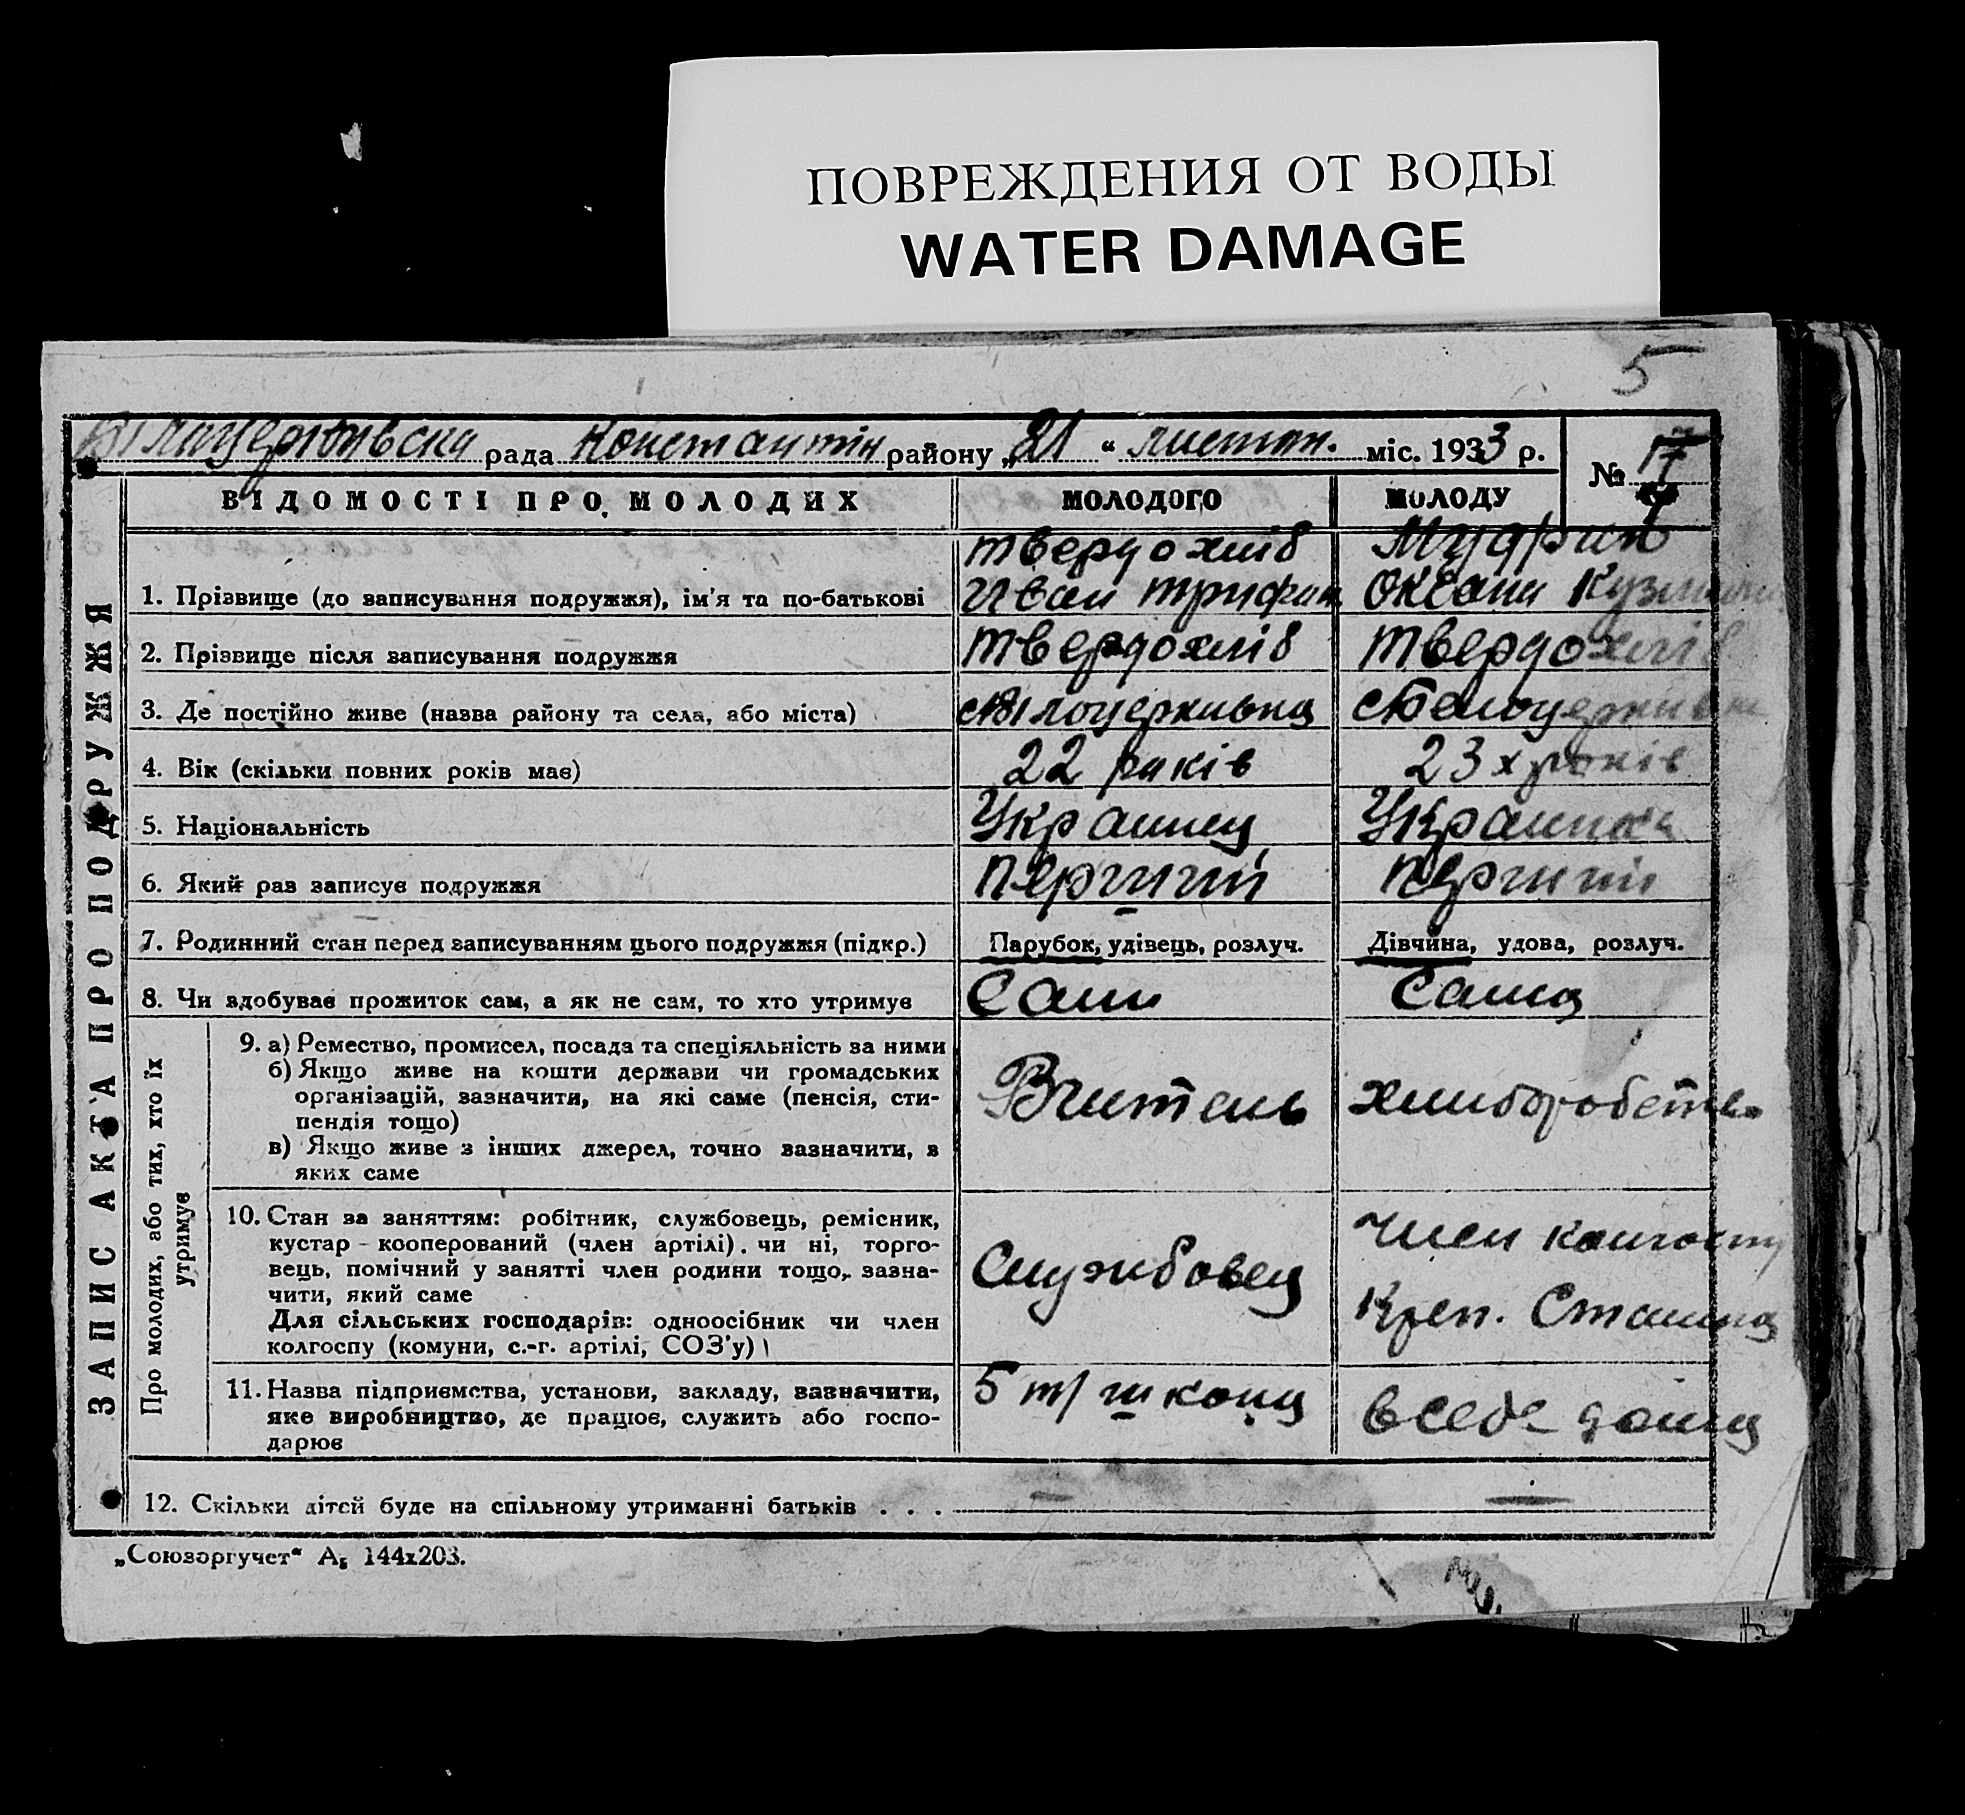 ПОВРЕЖДЕНИЯ ОТ ВОДЫ
WATER DAMAGE
5
Білоцерковська рада Константін району „21“ листоп. міс. 1933 р.
№ 17
ВІДОМОСТІ ПРО МОЛОДИХ МОЛОДОГО МОЛОДУ
ЗАПИС АКТА ПРО ПОДРУЖЖЯ
твердохліб
1. Прізвище (до записування подружжя), ім'я та по-батькові Иван трифин. Оксана
2. Прізвище після записування подружжя твердохліб твердохліб
3. Де постійно живе (назва району та села, або міста)
4. Вік (скільки повних років має) 22 років 23х років
5. Національність Украинец Украинка
6. Який раз записує подружжя перший перший
7. Родинний стан перед записуванням цього подружжя (підкр.) Парубок, удівець, розлуч. Дівчина, удова, розлуч.
8. Чи здобуває прожиток сам, а як не сам, то хто утримує Сам Сама
Про молодих, або тих, хто їх утримує
9. а) Ремество, промисел, посада та спеціяльність за ними
б) Якщо живе на кошти держави чи громадських
організацій, зазначити, на які саме (пенсія, сти-
пендія тощо)
в) Якщо живе з інших джерел, точно зазначити, з
яких саме
Вчитель хлиборобств
10. Стан за заняттям: робітник, службовець, ремісник,
кустар - кооперований (член артілі). чи ні, торго-
вець, помічний у занятті член родини тощо, зазна-
чити, який саме
Для сільських господарів: одноосібник чи член
колгоспу (комуни, с.-г. артілі, СОЗ'у)
Службовец
член колгоспу
Сталина
11. Назва підприємства, установи, закладу, зазначити,
яке виробництво, де працює, служить або госпо-
дарює
5 т/ школа
в себе дома
12. Скільки дітей буде на спільному утриманні батьків . . .
„Союзоргучет“ А₅ 144х203.